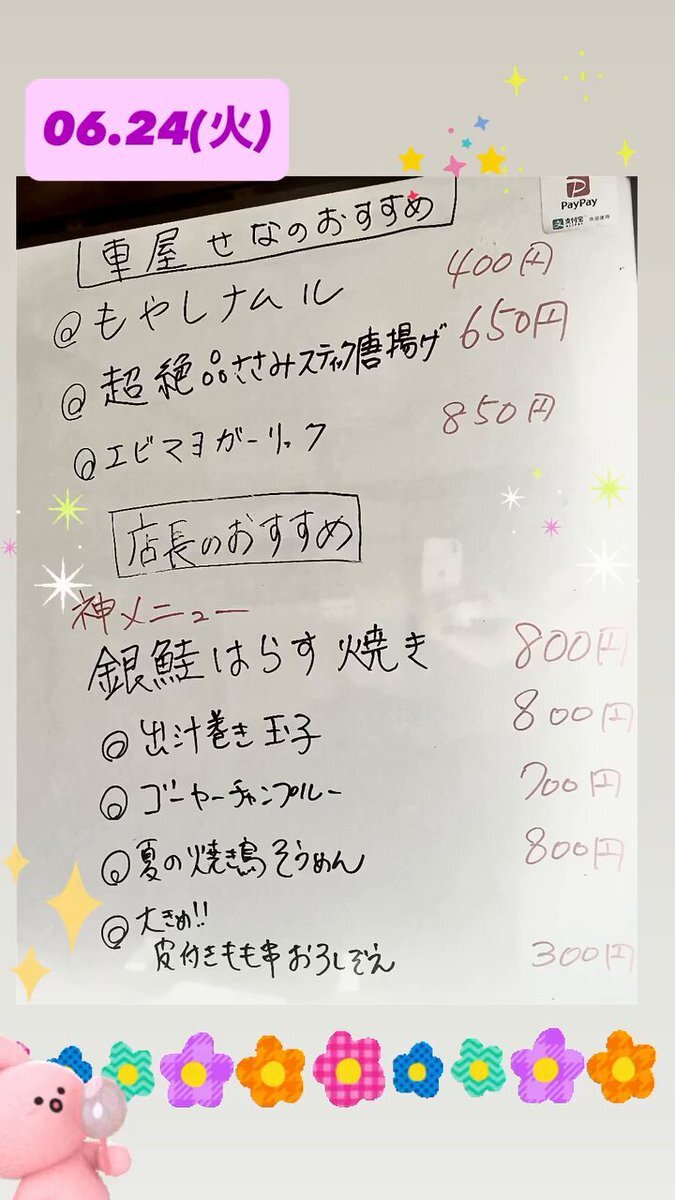 06.24(火)
PayPay
支付宝
車屋 せなのおすすめ
@もやしナムル 400円
@超絶品ささみスティック唐揚げ 650円
@エビマヨガーリック 850円
店長のおすすめ
神メニュー
銀鮭はらす焼き 800円
@出汁巻き玉子 800円
@ゴーヤーチャンプルー 700円
@夏の焼き鳥そうめん 800円
@大きめ!!
皮付きもも串おろしぞえ 300円